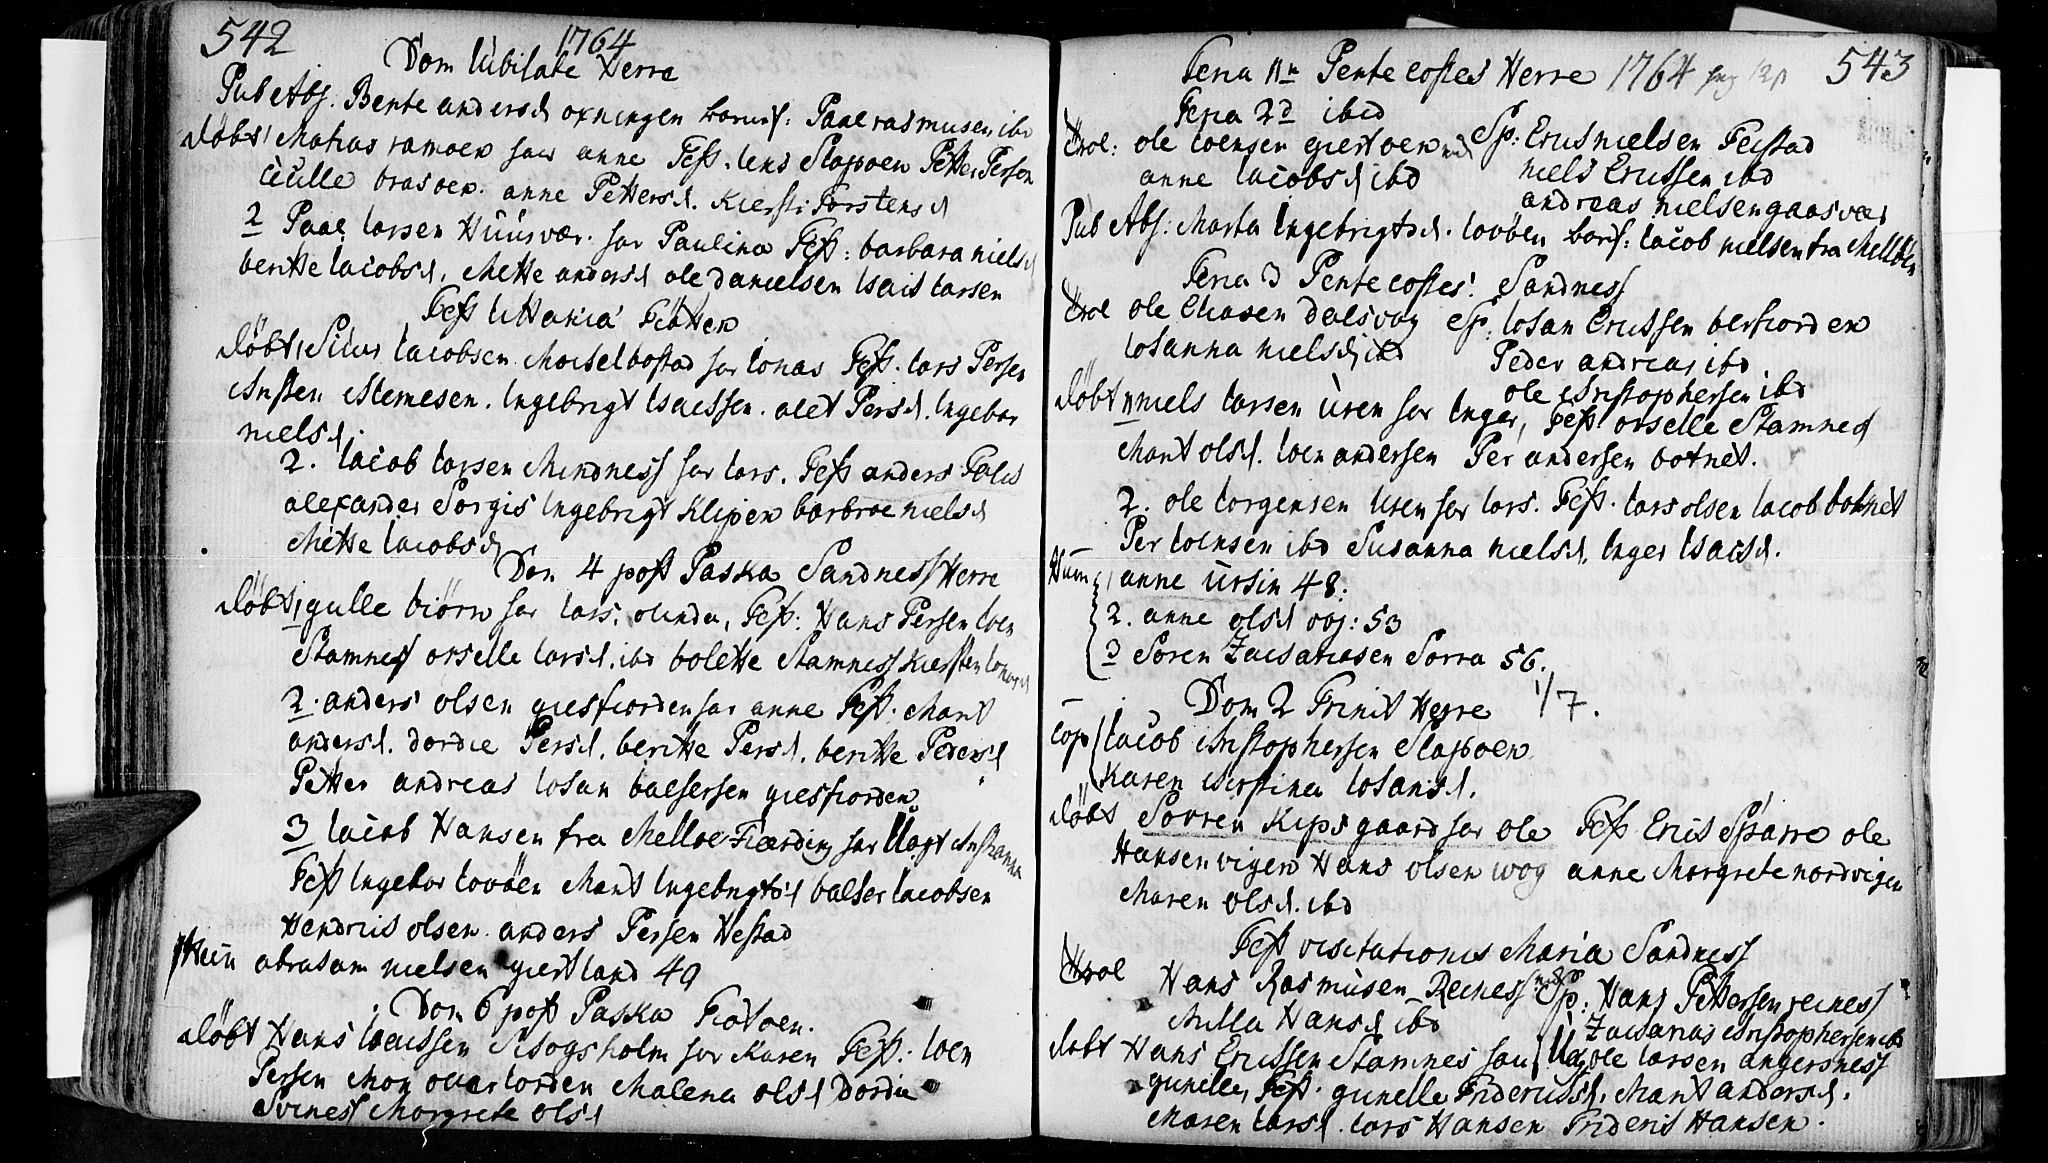 542
1764
Dom Iubilate Herrø
Pub Abs. Bente andersd oxningen barnf: Paal rasmusen ibd
døbt 1 Matias ramøen har anne Fess. lens Slapøen Petter Persen
brasøen. anne Pettersd. Kiersti Torstensd
2 Paal larsen Huusvær. har Paulina Fess: barbara nielsd
beritte Iacobsd, Mette andersd ole danielsen Isach larsen
Fess Litania Fiøtten
døbt 1 Iacobsen Meiselbostad har Ionas Fess. lars Persen
Ingebrigt Isacssen. alet Persd. Ingebor
nielsd.
2. Iacob larsen Mindness har lars. Fess anders
alexander Sorgis Ingebrigt Klipen barbroe nielsd
Mette Iacobsd
Dom 4 post Paska Sandness Herrø
døbt 1 gulle biørn har lars, Fess: Hans Persen Ioen
Stamness orselle larsd. ibd bolette Stamness Kiersten Ionasd
2. anders olsen giesfiorden har anne Fess. Marit
andersd. dordie Persd. beritte Persd. beritte Pedersd
Petter andreas Iohan balsersen giesfiorden.
3 Iacob Hansen fra Melløe Fierding har Uægt
Fess Ingebor lovöen Marit Ingebrigtsd balser Iacobsen
Hendrich olsen. anders Persen Hestad
Hum abraham nielsen giertland 49
Dom 6 post Paska Fiøtøen.
døbt Hans Isacssen Skogsholm har Karen Fess: Ioen
Persen Malena olsd Dordie
Svines Margrete olsd
543
Feria 1ma Pentecostes Herrø 1764
Feria 2d ibid
Trol: ole Ioensen giertøen med Sp: Erichnielsen Feistad
anne Iacobsd ibd niels Erichssen ibd
andreas nielsen gaasvær
Pub Abs: Marta Ingebrigtsd. lovöen barnf: Iacob nielsen fra Melløen
Feria 3 Pentecostes. Sandness
Trol ole Eliasen dalsvog Sp: Iohan Erichssen berfiorden
Iohanna nielsd ibd Peder andreas ibd
ole Christophersen ibd
døbt 1 niels larsen Uren har Inger, Fess orselle Stamness
Marit olsd. Ioen andersen Per andersen botnet.
2. ole Iorgensen Uren har lars. Fess. lars olsen Iacob botnet
Per Ioensen ibd Susanna nielsd. Inger Isacsd.
Hum 1 anne Ursin 48:
2. anne olsd vog: 53
3 Soren Zachariasen Sorra 56.
Dom 2 Trinit Herrø 1/7.
Cop Iacob Christophersen Slapøen
Karen Christina Iohansd.
døbt Sorren Kipsgaard har ole Fess Erich Sparre ole
Hansen vigen Hans olsen wog anne Margrete nordvigen
Maren olsd. ibd
Fess visitationis Maria Sandness
Trol Hans Rasmusen Reines med Sp: Hans Pettersen reiness
Milla Hansd ibd Zacharias Christophersen ibd
døbt Hans Erichssen Stamnes har ole larsen angersness
gunelle, Fess. gunelle Friderichsd. Marit andersd.
Maren larsd. lars Hansen Friderich Hansen.